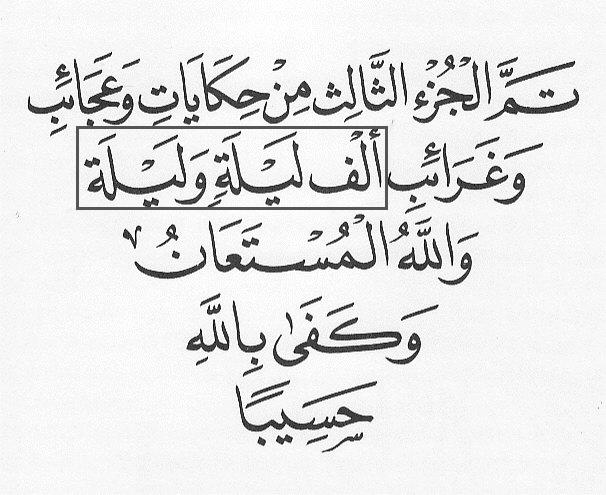 تَمَّ الْجُزْءُ الثَّالِث مِنْ حِكَايَاتِ وَعَجَائِبِ
وَغَرَائِبِ أَلْف لَيْلَةٍ وَلَيْلَة
وَاللَّهُ الْمُسْتَعَانُ
وَكَفَىٰ بِاللَّهِ
حَسِيبًا